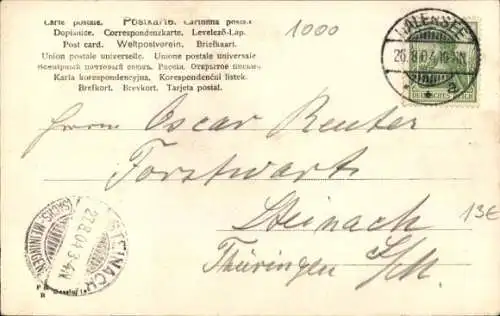 Carte postale. Postkarte. Cartolina postale.
Dopisnice. Correspondenzkarte. Levelező-Lap.
Post card. Weltpostverein. Briefkaart.
Union postale universelle. Unione postale universale
Всемірный почтовый союзъ. Россія. Открытое письмо.
Karta korespondencyjna. Korespondenční lístek.
Brefkort. Brevkort. Tarjeta postal.
1000
HALENSEE
26.8.04. 10-11N
DEUTSCHES REICH
Herrn Oscar Reuter
Forstwarts
Steinach
Thüringen S/M
13€
STEINACH
27.8.04.3-4N
(SACHS. MEININGEN)